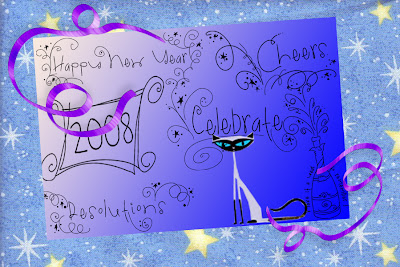 Happy New Year
Cheers
2008
Celebrate
Resolutions